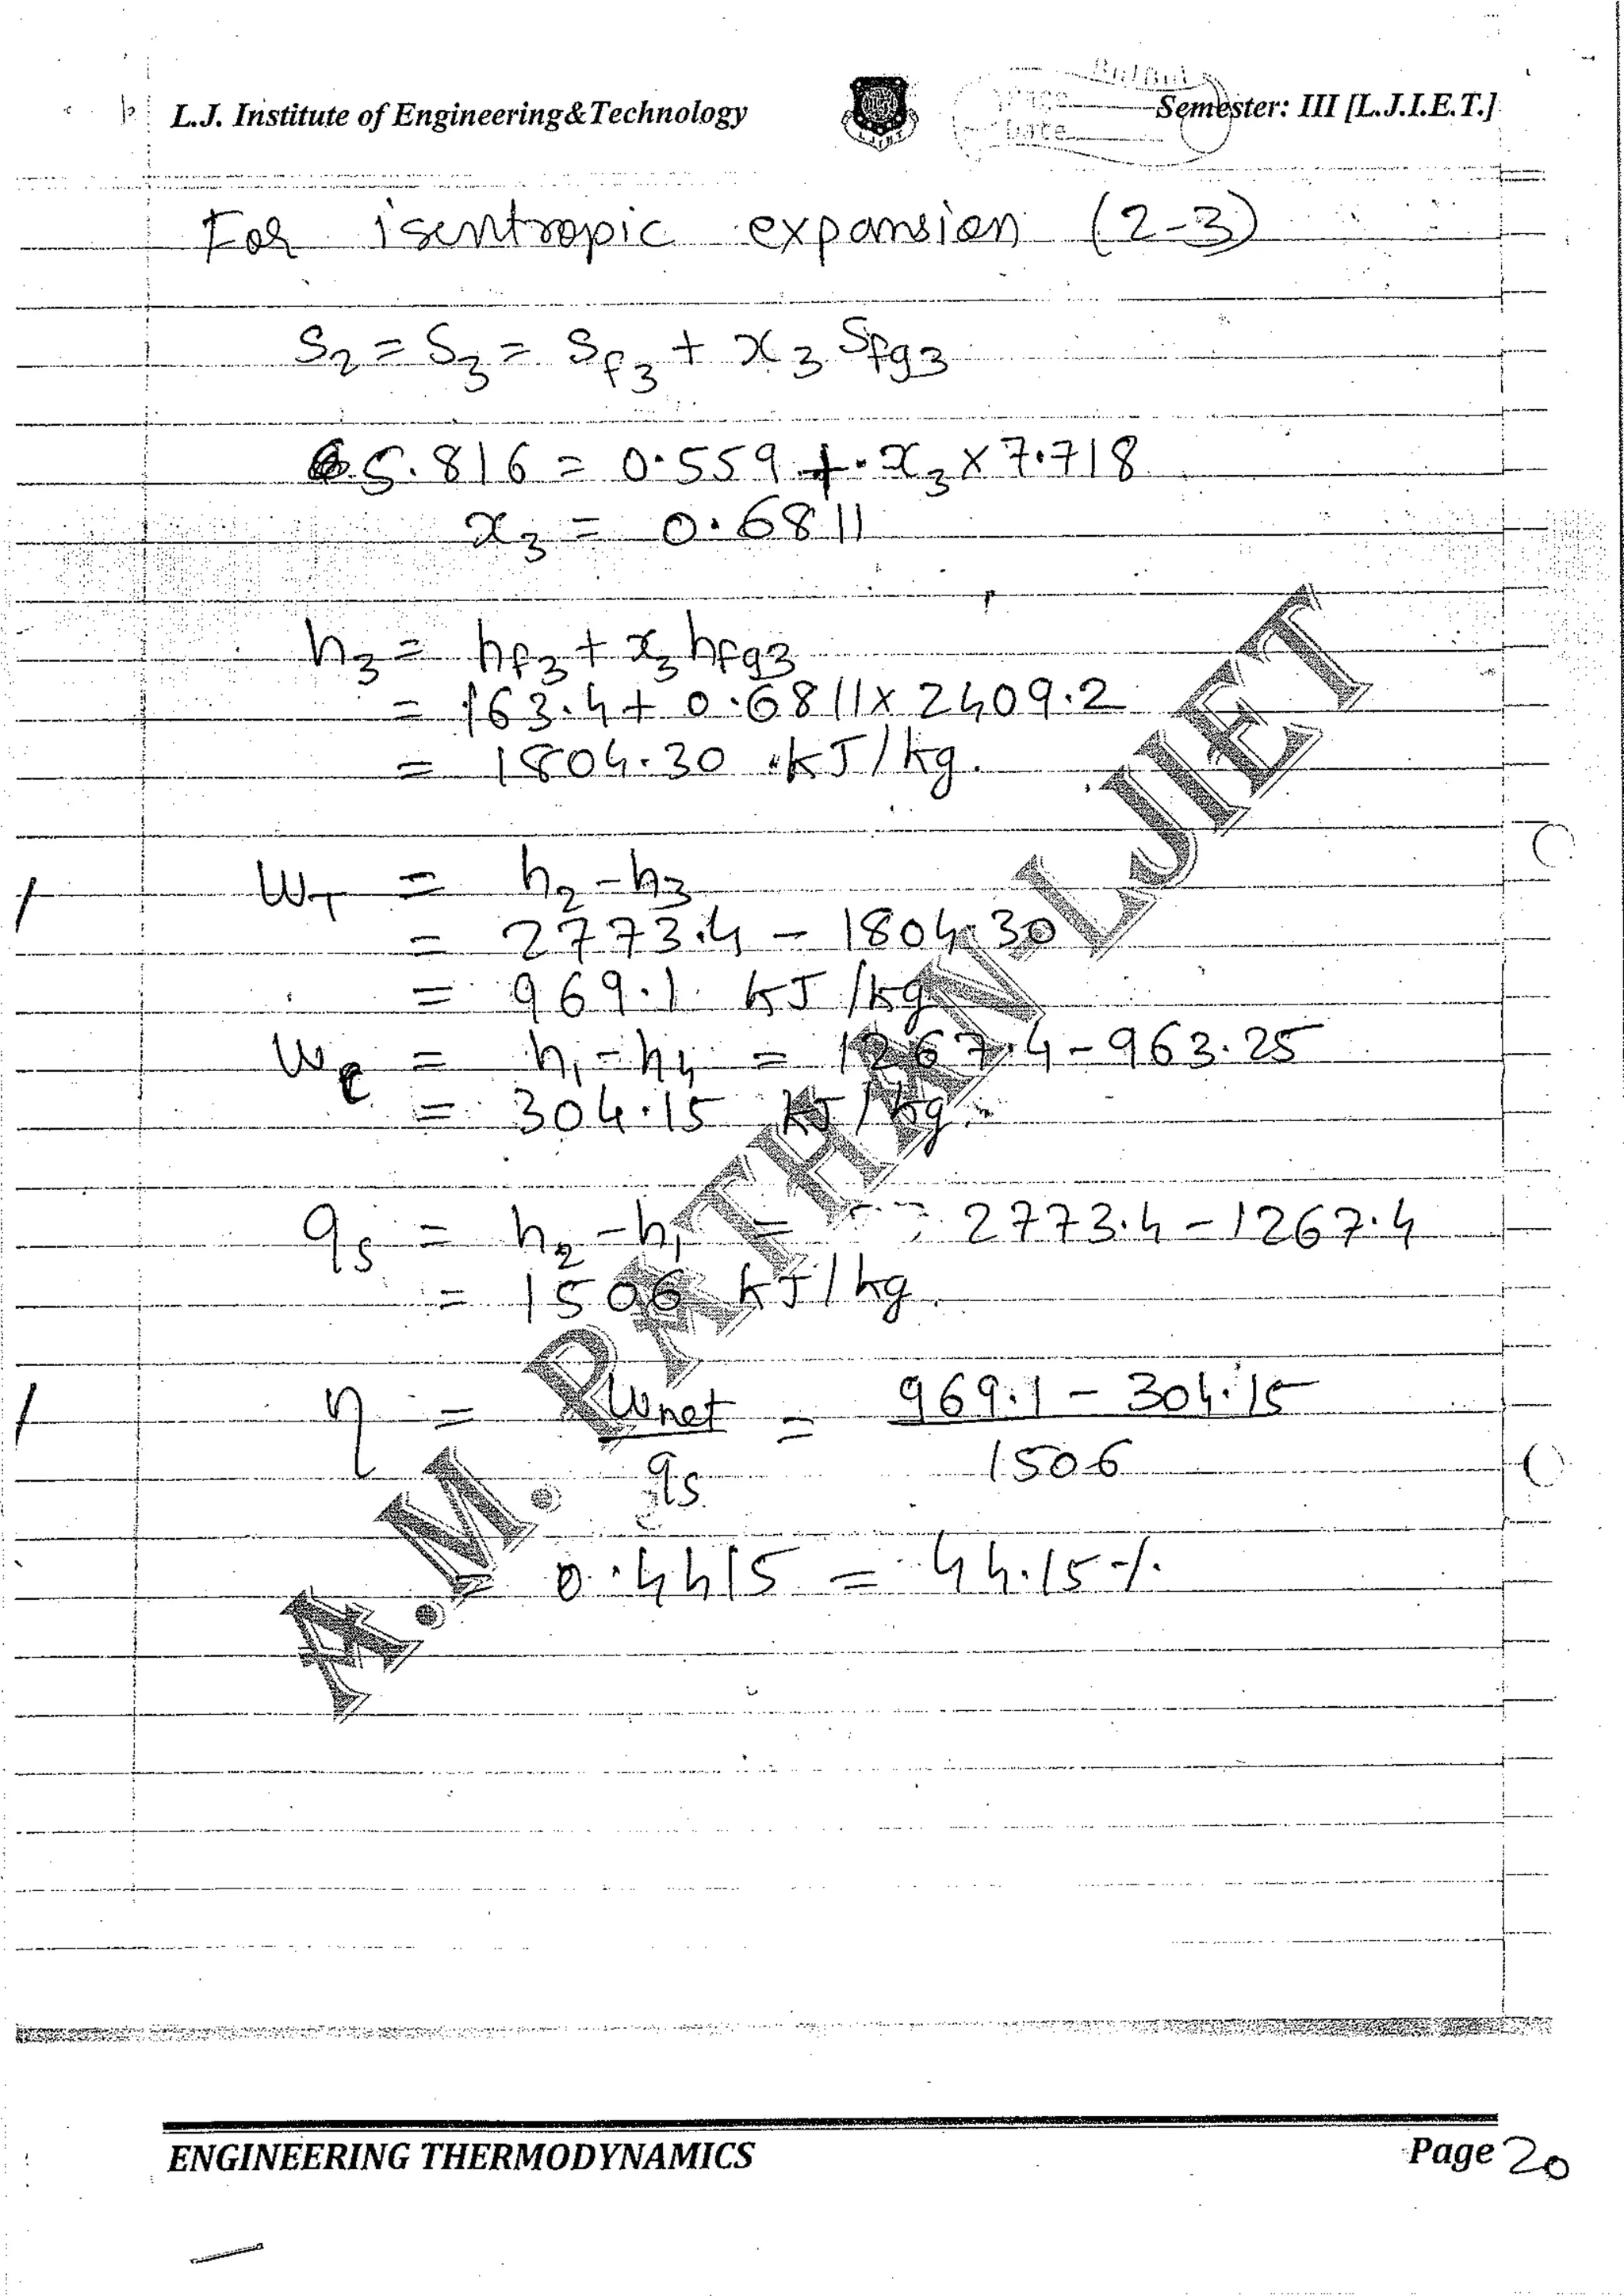 L.J. Institute of Engineering&Technology
Semester: III [L.J.I.E.T.]
Date
For isentropic expansion (2-3)
S₂ = S₃ = Sf₃ + x₃ Sfg₃
5.816 = 0.559 + x₃ × 7.718
x₃ = 0.6811
h₃ = hf₃ + x₃ hfg₃
= 163.4 + 0.6811 × 2409.2
= 1804.30 kJ/kg.
W_T = h₂ - h₃
= 2773.4 - 1804.30
= 969.1 kJ/kg
W_c = h₁ - h₄ = 1267.4 - 963.25
= 304.15 kJ/kg.
q_s = h₂ - h₁ = 2773.4 - 1267.4
= 1506 kJ/kg.
η = Wnet / q_s = 969.1 - 304.15 / 1506
= 0.4415 = 44.15 %
A.M. PATHAN-LJIET
ENGINEERING THERMODYNAMICS
Page 20